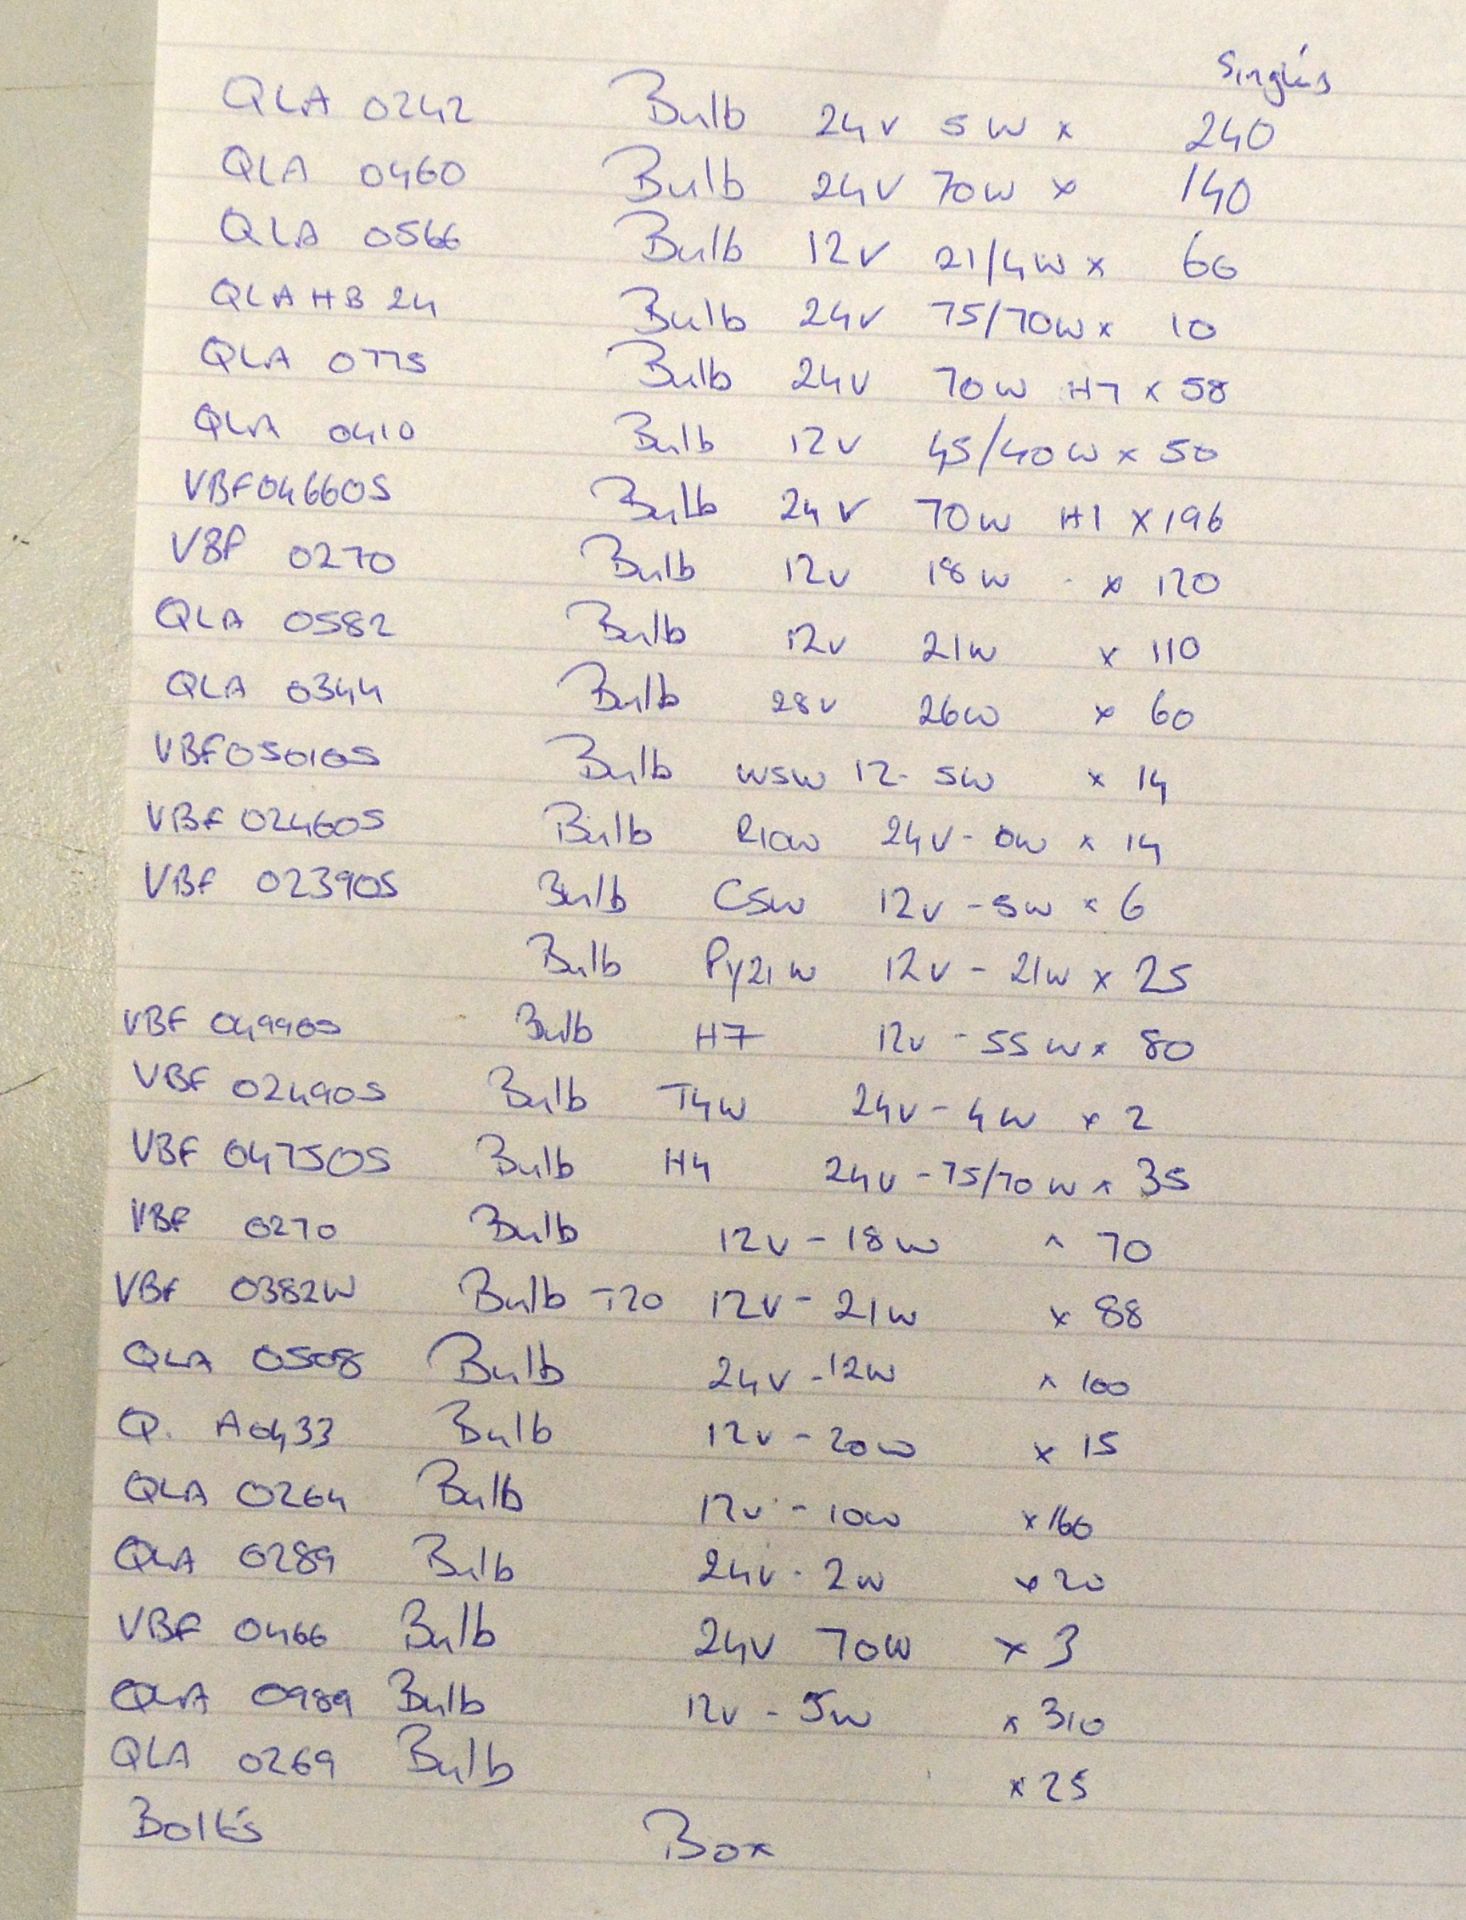 Singles
QLA 0242 Bulb 24v 5w x 240
QLA 0460 Bulb 24v 70w x 140
QLA 0566 Bulb 12v 21/4w x 60
QLA HB 24 Bulb 24v 75/70w x 10
QLA 0775 Bulb 24v 70w H7 x 58
QLA 0410 Bulb 12v 45/40w x 50
VBF04660S Bulb 24v 70w H1 x 196
VBF 0270 Bulb 12v 18w x 120
QLA 0582 Bulb 12v 21w x 110
QLA 0344 Bulb 28v 26w x 60
VBF05010S Bulb W5W 12- 5w x 14
VBF 02460S Bulb R10w 24v - 0w x 14
VBF 02390S Bulb C5w 12v - 5w x 6
Bulb Py21w 12v - 21w x 25
VBF 04990S Bulb H7 12v - 55w x 80
VBF 02490S Bulb T4w 24v - 4w x 2
VBF 04750S Bulb H4 24v - 75/70w x 35
VBF 0270 Bulb 12v - 18w x 70
VBF 0382W Bulb T20 12v - 21w x 88
QLA 0508 Bulb 24v - 12w x 100
Q. A0433 Bulb 12v - 20w x 15
QLA 0264 Bulb 12v - 10w x 160
QLA 0289 Bulb 24v - 2w x 20
VBF 0466 Bulb 24v 70w x 3
QLA 0989 Bulb 12v - 5w x 310
QLA 0269 Bulb x 25
Bolts Box